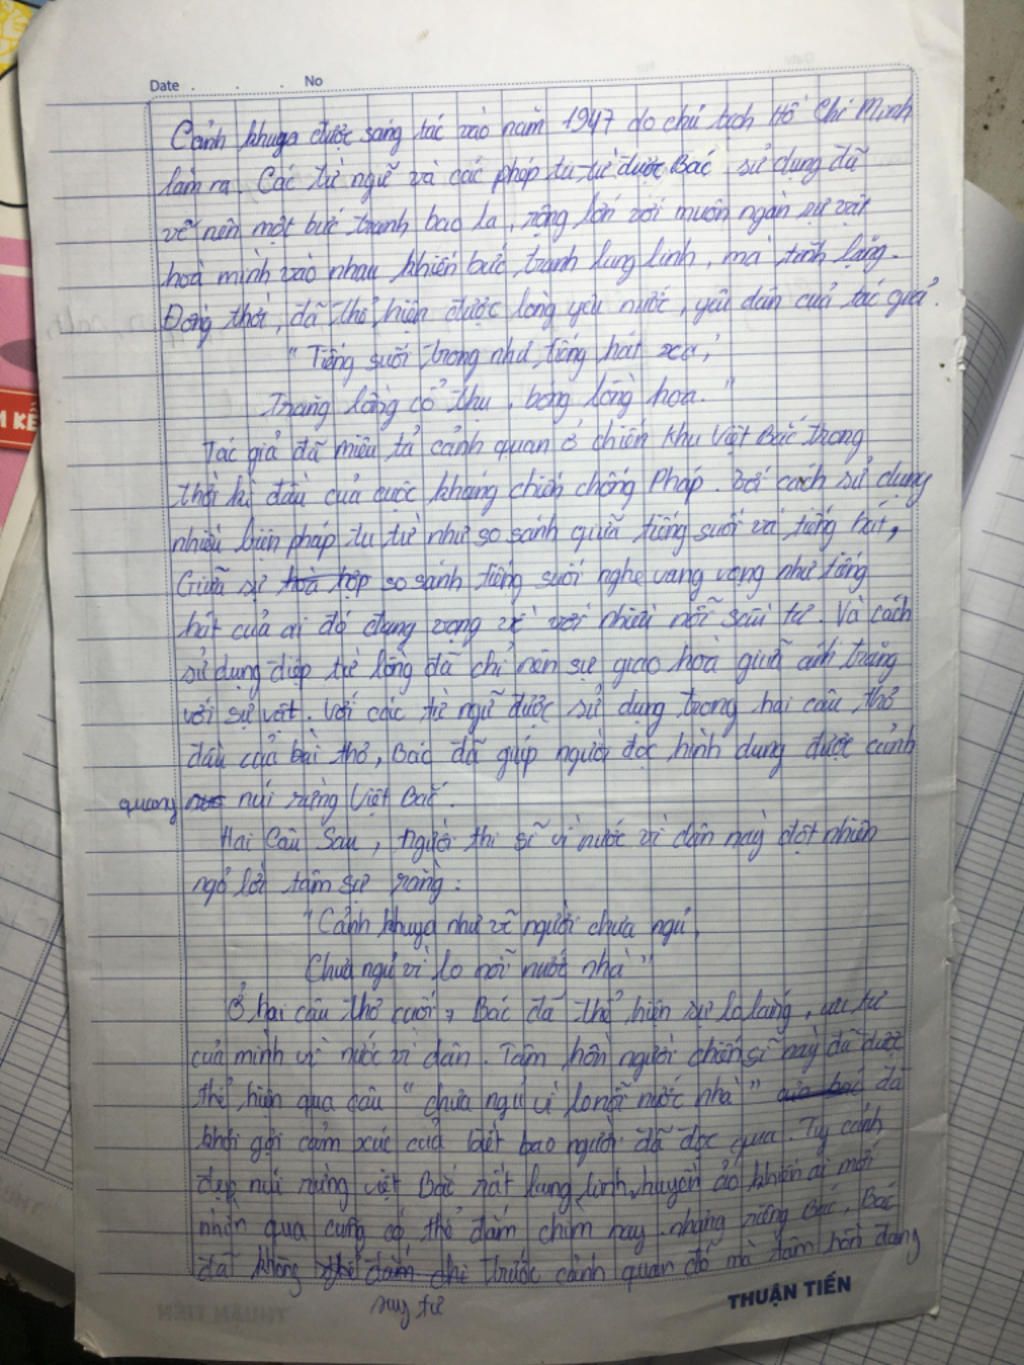 Date . . . No
Cảnh khuya được sáng tác vào năm 1947 do chủ tịch Hồ Chí Minh
làm ra. Các từ ngữ và các pháp tu từ được Bác sử dụng đã
vẽ nên một bức tranh bao la, rộng lớn với muôn ngàn sự vật
hoà mình vào nhau khiến bức tranh lung linh, mà tĩnh lặng.
Đồng thời, đã thể hiện được lòng yêu nước, yêu dân của tác giả.
"Tiếng suối trong như tiếng hát xa,
Trăng lồng cổ thụ, bóng lồng hoa."
Tác giả đã miêu tả cảnh quan ở chiến khu Việt Bắc trong
thời kì đầu của cuộc kháng chiến chống Pháp. Với cách sử dụng
nhiều biện pháp tu từ như so sánh giữa tiếng suối và tiếng hát,
Giữa sự so sánh tiếng suối nghe vang vọng như tiếng
hát của ai đó đang vọng về với nhiều nỗi sầu tư. Và cách
sử dụng điệp từ lồng đã chỉ nên sự giao hoà giữa ánh trăng
với sự vật. Với các từ ngữ được sử dụng trong hai câu thơ
đầu của bài thơ, Bác đã giúp người đọc hình dung được cảnh
quang núi rừng Việt Bắc.
Hai Câu Sau, người thi sĩ vì nước vì dân này đột nhiên
ngỏ lời tâm sự rằng:
"Cảnh khuya như vẽ người chưa ngủ,
Chưa ngủ vì lo nỗi nước nhà"
Ở hai câu thơ cuối, Bác đã thể hiện sự lo lắng, ưu tư
của mình vì nước vì dân. Tâm hồn người chiến sĩ này đã được
thể hiện qua câu "chưa ngủ vì lo nỗi nước nhà" đã
khơi gợi cảm xúc của biết bao người đã đọc qua. Tuy cảnh
đẹp núi rừng việt Bắc rất lung linh, huyền ảo khiến ai mới
nhìn qua cũng có thể đắm chìm ngay. nhưng riêng Bác, Bác
đã không trước cảnh quan đó mà tâm hồn đang
suy tư
THUẬN TIẾN